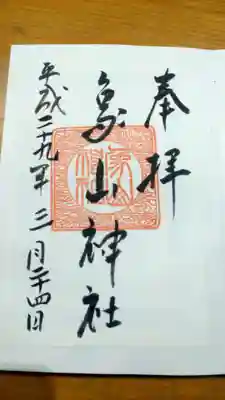 奉拝
象山神社
平成二十九年三月二十四日